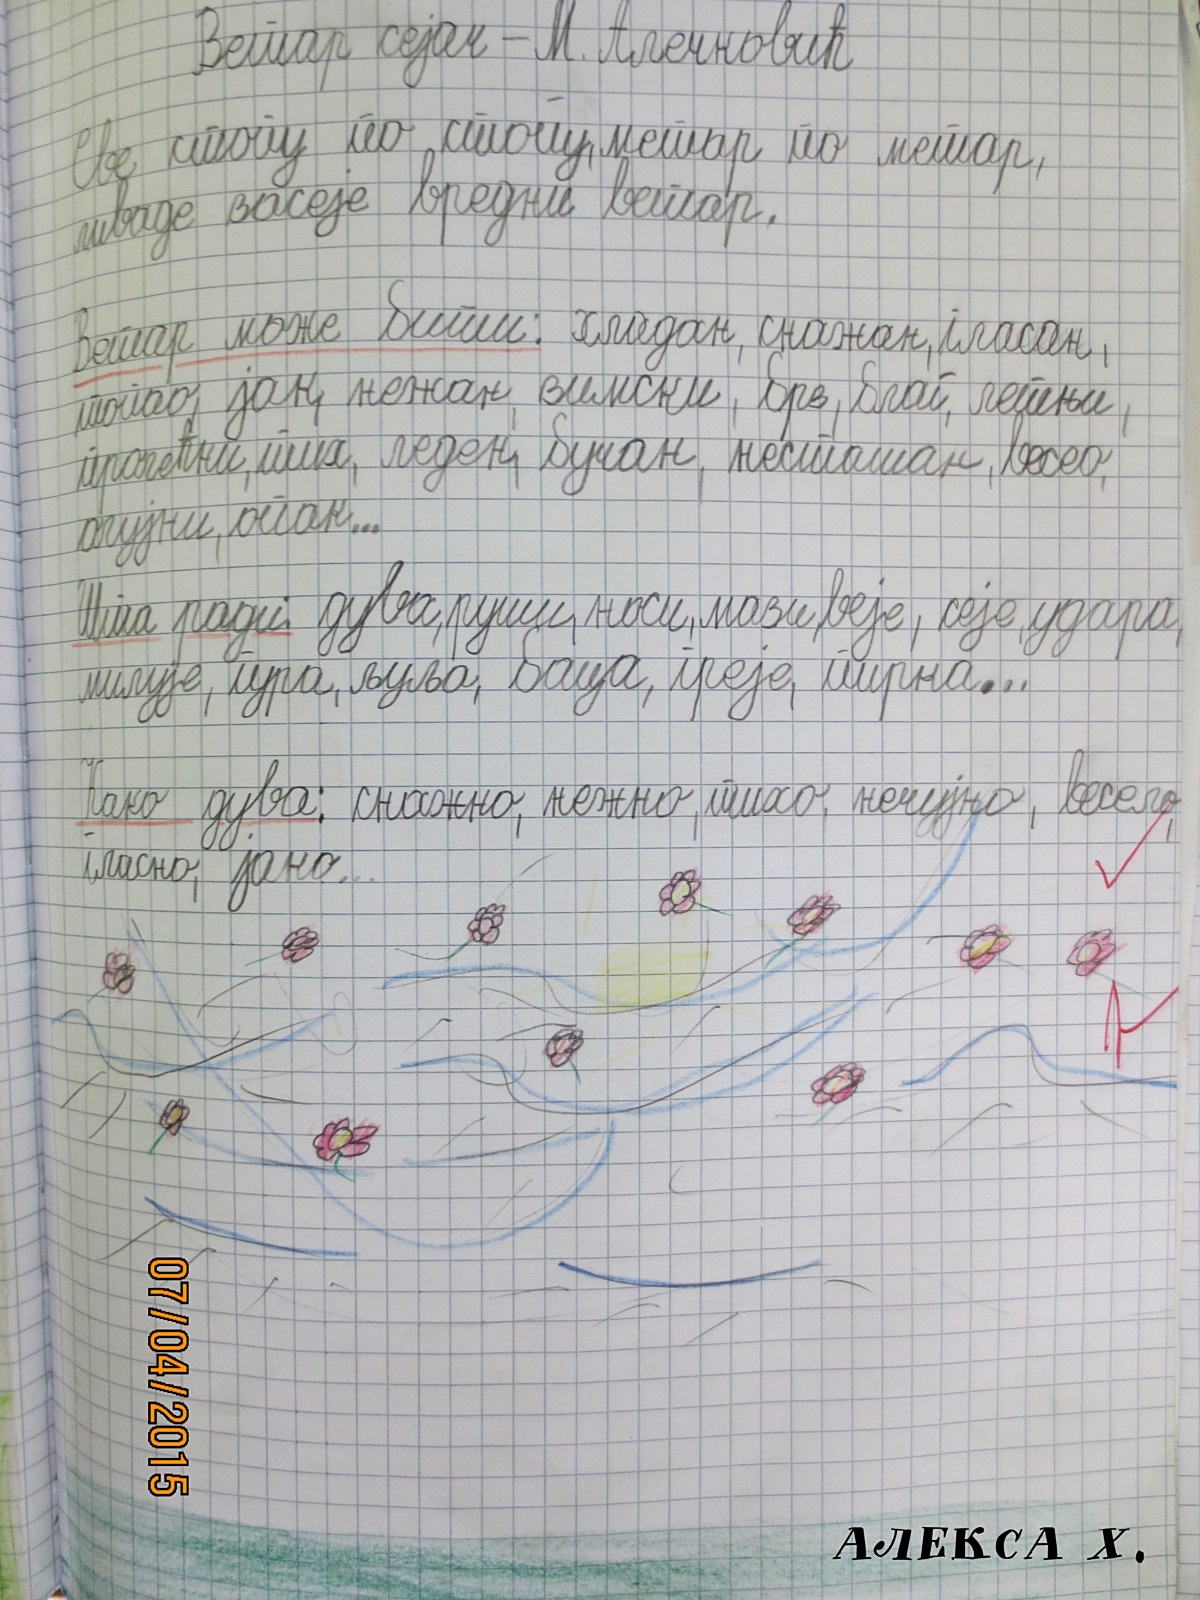 Ветар сејач – М. Алечковић
Све стопу по стопу, метар по метар,
ливаде засеје вредни ветар.
Ветар може бити: хладан, снажан, гласан,
топао, јак, нежан, зимски, брз, благ, летњи,
пролетњи, тих, леден, бучан, несташан, весео,
олујни, опак...
Шта ради: дува, руши, носи, мази, веје, сеје, удара,
милује, гура, љуља, баца, греје, пирка...
Како дува: снажно, нежно, тихо, нечујно, весело,
гласно, јако...
07/04/2015
АЛЕКСА Х.